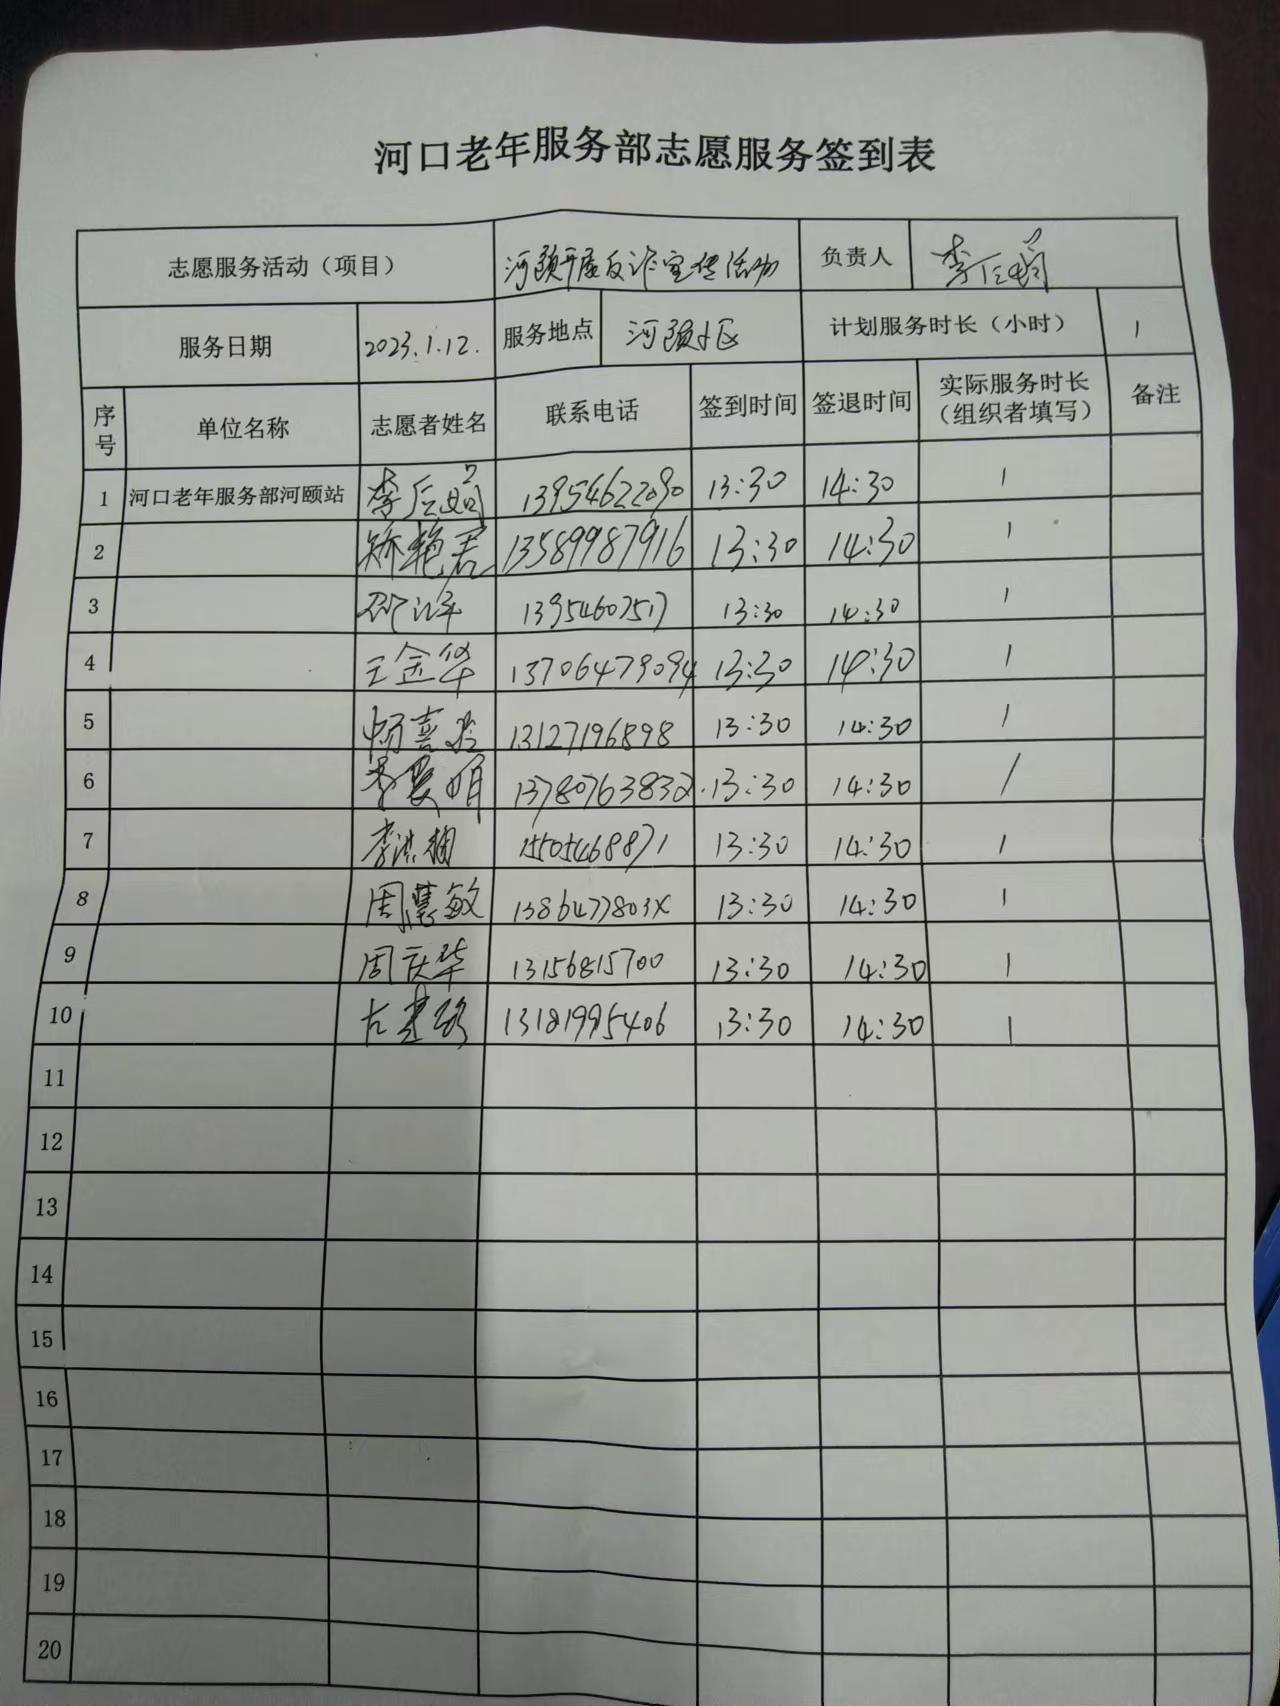 河口老年服务部志愿服务签到表
志愿服务活动（项目） 河颐开展反诈宣传活动 负责人 李后娟
服务日期 2023.1.12. 服务地点 河颐小区 计划服务时长（小时） 1
序号 单位名称 志愿者姓名 联系电话 签到时间 签退时间 实际服务时长（组织者填写） 备注
1 河口老年服务部河颐站 李后娟 13954622090 13:30 14:30 1
2 矫艳君 13589987916 13:30 14:30 1
3 13954607517 13:30 14:30 1
4 王金华 13706479094 13:30 14:30 1
5 13127196898 13:30 14:30 1
6 13780763832 13:30 14:30 1
7 15505468871 13:30 14:30 1
8 周慧敏 13:30 14:30 1
9 周庆华 13156815700 13:30 14:30 1
10 13:30 14:30 1
11
12
13
14
15
16
17
18
19
20